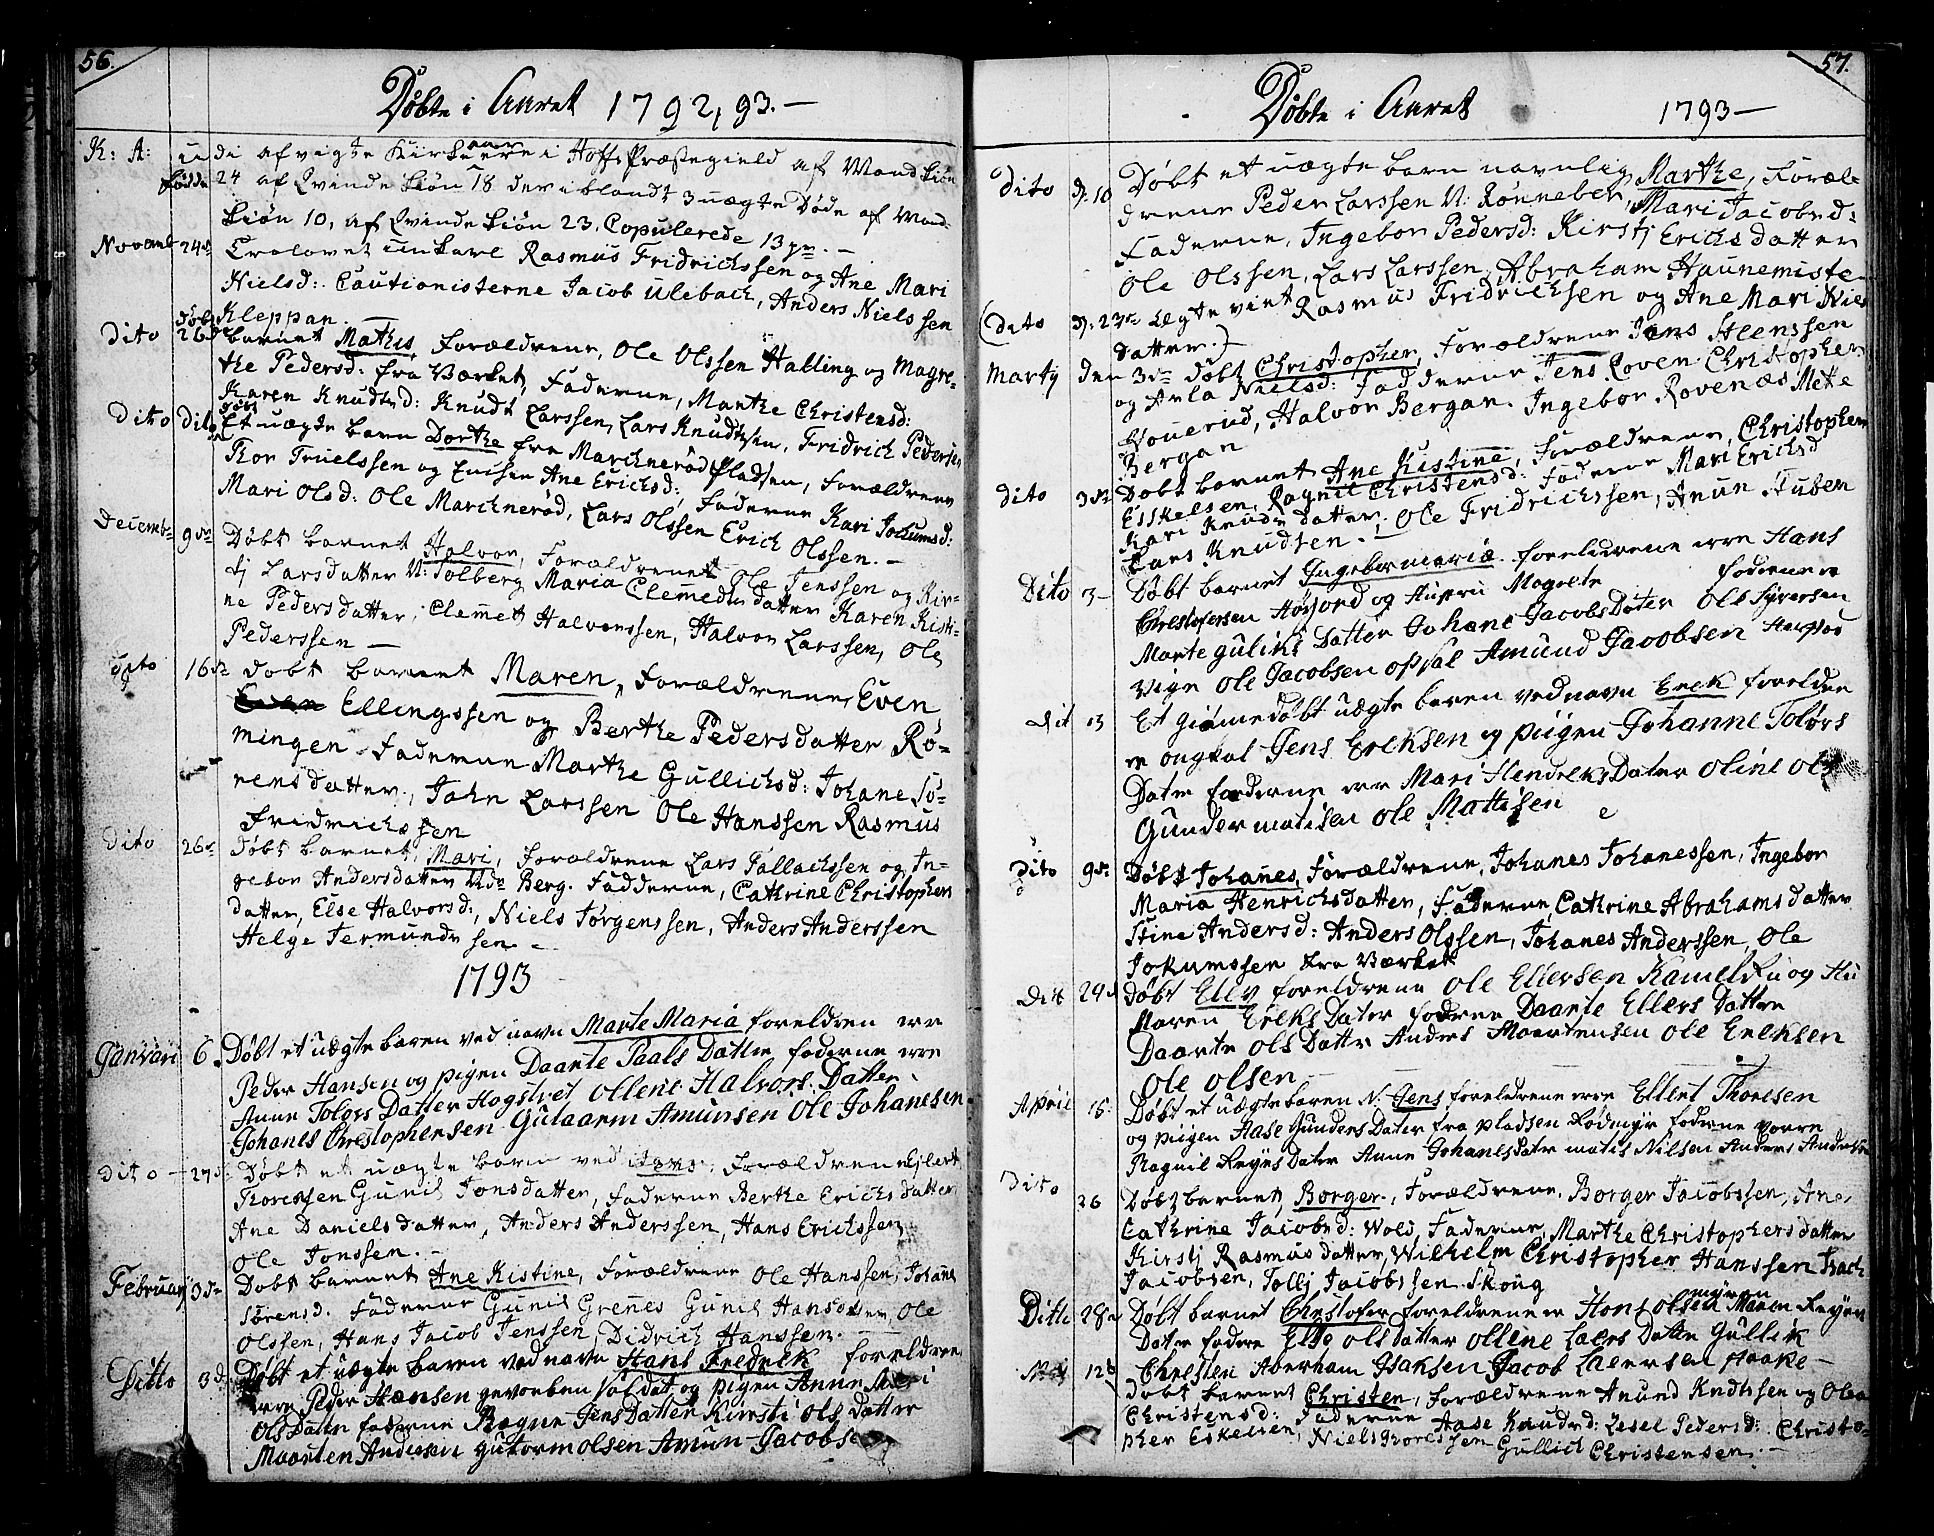 56.
Döbte i Aaret 1792, 93. —
K: A: udi afvigte Kirke aare i Hoffs Præstegield af Mandkiön
födde 24 af Qvindekiön 18 deriblandt 3 uægte Døde af Mand-
kiön 10, af Qvindekiön 23. Copulerede 13 pr. —
Novemb 24de Trolovet unkarl Rasmus Fridrichssen og Ane Mari
Nielsd: Cautionisterne Jacob Ulebach, Anders Nielssen
Kleppan. —
Dito 26de Döbt barnet Mathis, Forældrene, Ole Olssen Halling og Magre-
the Pedersd: fra Værket, Faderne, Marthe Christensd:
Karen Knudsd: Knudt Larssen, Lars Knudtsen, Fridrich Pedersen
Dito dito döbt Et uægte barn Dorthe fra Marchneröd Pladsen, Forældrene
Thor Truelssen og Enchen Ane Erichsd: Faderne Kari Jochumsd:
Mari Olsd: Ole Marchneröd, Lars Olssen Erich Olssen. —
Decemb 9de Döbt barnet Halvor, Forældrene Ole Jenssen og Kir-
stj Larsdatter N: Solberg Maria Clemedsdatter Karen Kisti-
ne Pedersdatter, Clemet Halvorssen, Halvor Larssen, Ole
Pederssen —
Dito 16de döbt barnet Maren, Forældrene Even
Ellingssen og Berthe Pedersdatter Rö-
mingen. Faderne Marthe Gullichsd: Johane Sö-
rensdatter, Jahn Larssen Ole Hanssen Rasmus
Fridrichssen
Dito 26de Döbt barnet, Mari, Forældrene Lars Tallachssen og In-
gebor Andersdatter Ndr Berg. Fadderne, Cathrine Christophers
datter, Else Halvorsd:, Niels Jörgenssen, Anders Anderssen
Helge Termundssen —
1793
Janvari 6. Döbt et uægte baren ved navn Marte Maria foreldren ere
Peder Hansen og pigen Daarte Paals Datter foderne ere
Anne Tolörs Datter Hogstvet Ollene Halvors Datter
Johanes Chrestophersen Gulaarm Amunsen Ole Johanesen
Dito — 27de Döbt et uægte barn ved Jens, Forældrene Ejlert
Thoressen Gunil Jonsdatter, Faderne Berthe Erichsdatter
Ane Danielsdatter, Anders Anderssen, Hans Erichssen
Ole Jonssen. —
Februarj 3de Döbt barnet Ane Kistine, Forældrene Ole Hanssen, Johane
Sörensd. Faderne Gunil Grenes Gunil Hansdatter, Ole
Olssen, Hans Jacob Jenssen, Didrich Hanssen. —
Ditto 3d. Döbt et uægte baren ved navn Hans Fredrek foreldren
ere Peder Hansen gevorben Soldat og pigen Anne Mari
Ols Datter foderne Ragne Jens Datter Kirsti Ols Datter
Maarten Andersen gutorm olsen Amun Jacobs
57.
Döbte i Aaret 1793 —
Dito d. 10 Döbt et uægte barn navnlig Marthe, Foræl-
drene Peder Larssen N: Rönneber, Mari Jacobsd:
Faderne, Ingebor Pedersd: Kirstj Erichsdatter
Ole Olssen, Lars Larssen, Abraham Haunemiste-
(dito d. 23de Ægte viet Rasmus Fridrichsen og Ane Mari Niels
datter.)
Martj den 3de döbt Christopher, Forældrene Jens Steenssen
og Anla Nielsd: Fadderne Jens Loven Christopher
Houerud, Halvor Bergan. Ingebor Rovenæs Mette
Bergan
dito 3de Döbt barnet Ane Kistine, Forældrene, Christopher
Esskelsen, Ragnil Christensd: Faderne Mari Erichsd
Kari Knudsdatter, Ole Fridrichssen, Anun Stuben
Lars Knudsen. —
Dito 3 — Döbt barnet Ingebormaria. foreldrene erre Hans
Chrestofersen Høyjord og Hustru Magrete foderne er
Marte gulikS Datter Johane Jacobs Doter Ole Syversen
Vign Ole Jacobsen opsal Amund Jacobsen
Dit 3 Et giömedöbt uægte baren vednavn Erek foreldre
er ongkal Jens Ereksen og pigen Johanne Tolörs
Dater foderne ere Mari Hendreks Dater oline ols
Gunder matisen ole Mattisen
Dito 9de Döbt Johanes, Forældrene, Johanes Johanessen, Ingebor
Maria Henrichsdatter, Faderne, Cathrine Abrahamsdatter
Stine Andersd: Anders Olssen, Johanes Anderssen, Ole
Jokumssen fra Værket
Dit 24d döbt Ellev foreldrene Ole Ellersen Kamelru og Hu
Maren Ereks Dater fodrene Daarte Ellers Datter
Daarte Ols Datter Anders Maartensen Ole Ereksen
Ole olsen —
Apriel 15. Döbt et uægte baren N. Jens foreldrene ere Ellert Thoresen
og pigen Aase Gunders Dater fra pladsen Rødmyr foderne vorre
Ragnil Reyers Dater Anne Johanes Dater matis Nilsen Anders Andersen
Dito 26 Döbt barnet, Borger, Forældrene, Borger Jacobssen, Ane
Cathrine Jacobsd: Wold, Faderne, Marthe Christophersdatter
Kirstj Rasmusdatter, Wilhelm Christopher Hanssen Isach
Jacobsen, Tollj Jacobssen Skoug
Ditto 28de Döbt barnet Chrestofer foreldrene er Hans olsen myren Maren Reyers
Dater fodere Else ols datter ollene Laers Datter Gullik
Chresten Aberham Isaksen Jacob Laersen Haake —
Maj 12de döbt barnet Christen, Forældrene Anund Knutssen og Olea
Christensd: Faderne Aase Knudsd: Lesel Pedersd: Christo-
pher Eskelsen, Niels Thoressen Gullich Christensen. —